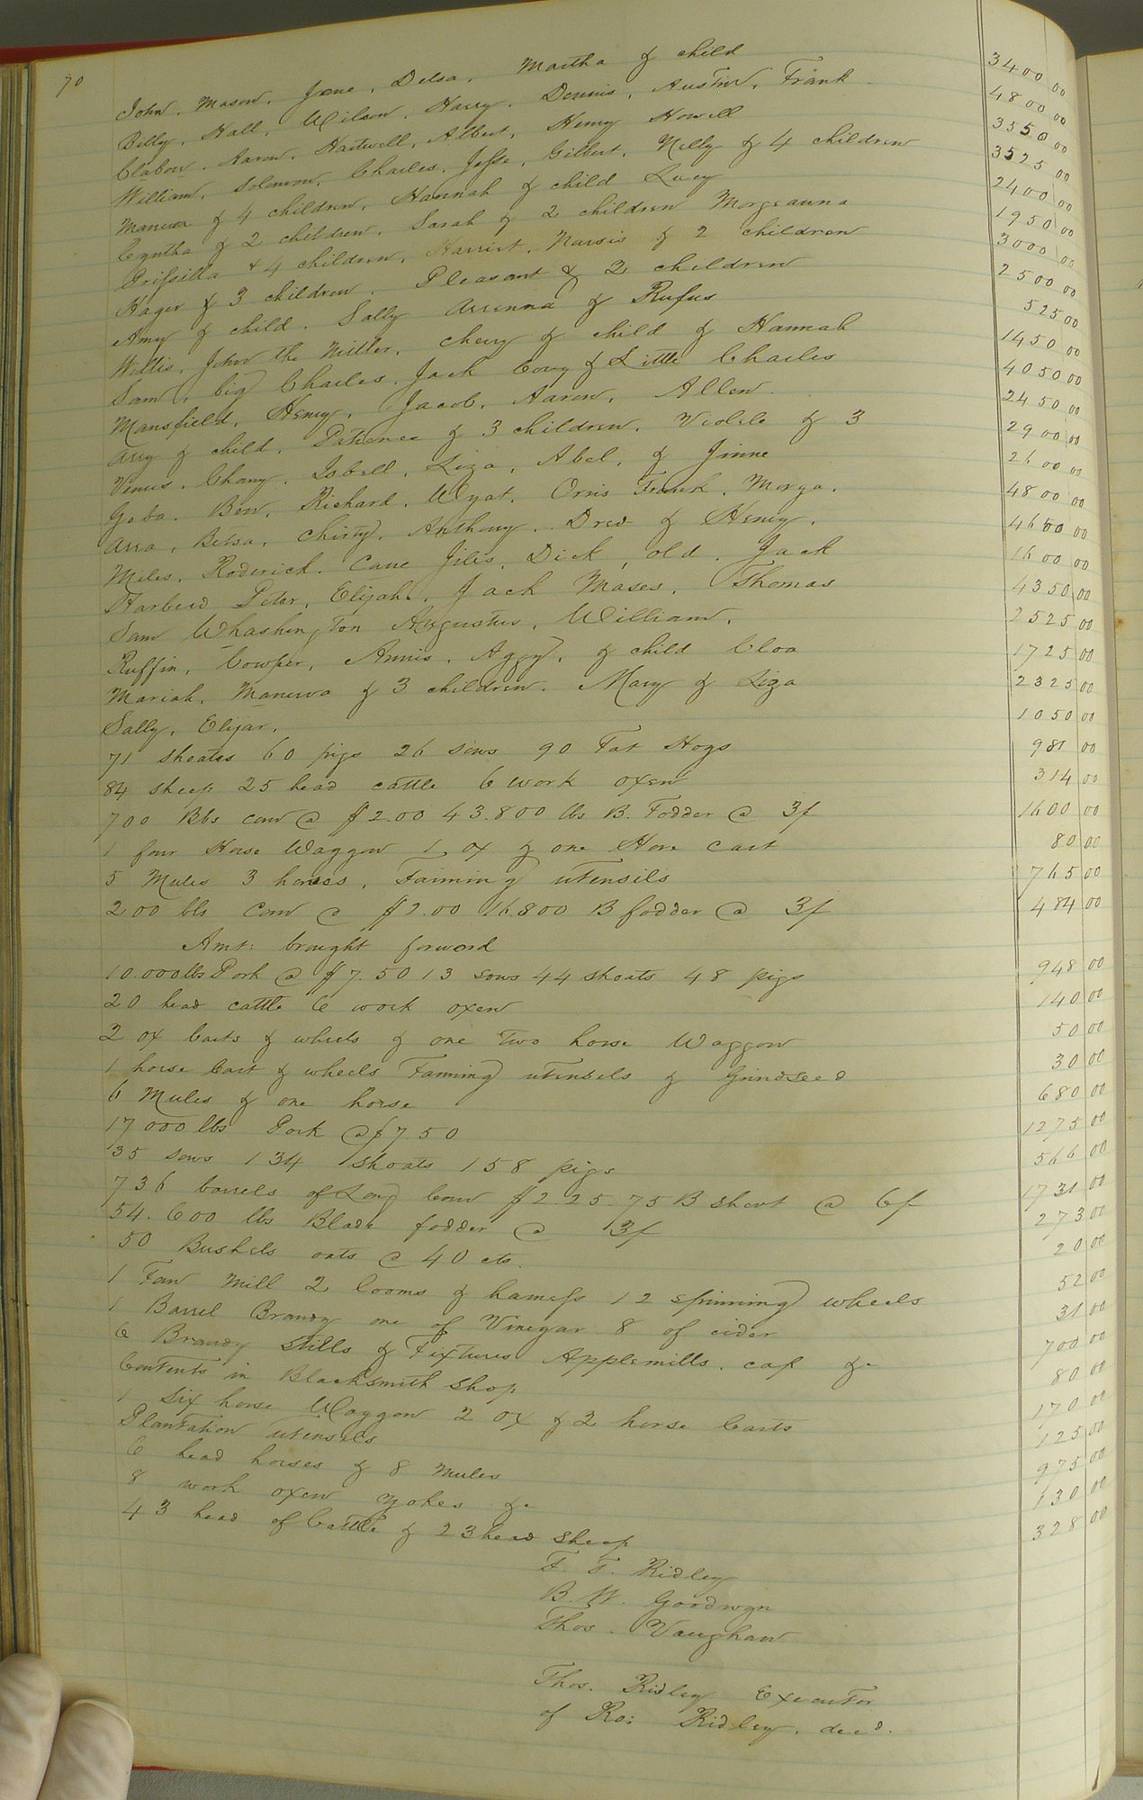 70
John, Mason, Jane, Delsa, Martha & child 3400 00
Billy, Hall, Wilson, Harry, Dennis, Austin, Frank 4800 00
Clabon, Aaron, Hartwell, Albert, Henry Howell 3550 00
William, Solomon, Charles, Jesse, Gilbert, Nelly & 4 children 3525 00
Manerva & 4 children, Hannah & child Lucy 2400 00
Cyntha & 2 children, Sarah & 2 children Morgeanna 1950 00
Prissilla & 4 children, Harriet, Narsis & 2 children 3000 00
Hager & 3 children. Pleasant & 2 children 2500 00
Amy & child. Sally Arrenna & Rufus 525 00
Willis, John the Miller, Chery & child & Hannah 1450 00
Sam, big Charles, Jack Cony & Little Charles 4050 00
Mansfield, Henry, Jacob, Aaron, Allen 2450 00
Arry & child, Patience & 3 children, Violete & 3 2900 00
Venus, Chany, Isbell, Liza, Abel, & Jinne 2600 00
Goda. Ben, Richard, Wyat, Orris Frank, Morga, 4800 00
Arra, Betsa, Christy, Anthony, Dred & Henry, 4650 00
Miles, Roderick, Cane Jiles, Dick, old. Jack 1600 00
Harberd Peter, Elijah, Jack Moses, Thomas 4350 00
Sam Whashington Augustus, William, 2525 00
Ruffin, Cowper, Annis, Aggy, & child Cloa 1725 00
Mariah, Manerva & 3 children. Mary & Liza 2325 00
Sally, Elijar, 1050 00
71 Shoates 60 pigs 26 sows 90 Fat Hogs 981 00
84 sheep 25 head cattle 6 work oxen 314 00
700 Bbs corn @ $2.00 43.800 lbs B. Fodder @ 3/ 1600 00
1 four Horse Waggon 1 ox & one Hore Cart 80 00
5 Mules 3 horses, Farming utensils 765 00
200 bls Corn @ $2.00 16.800 B fodder @ 3/ 484 00
Amt: brought forword
10.000 lbs Pork @ $7.50 13 sows 44 shoats 48 pigs 948 00
20 head cattle 6 work oxen 140 00
2 ox Carts & wheels & one Two horse Waggon 50 00
1 horse Cart & wheels Farming utensels & Grindseed 30 00
6 Mules & one horse 680 00
17000 lbs Pork @ $7 50 1275 00
35 sows 134 shoats 158 pigs 566 00
736 barrels of Long Corn $2.25. 75 B short @ 6/ 1731 00
54.600 lbs Blade fodder @ 3/ 273 00
50 Bushels oats @ 40 cts. 20 00
1 Fan Mill 2 looms & harness 12 spinning wheels 52 00
1 Barrel Brandy one of Vinegar 8 of cider 31 00
6 Brandy Stills & Fixtures Applemills. cap &c 700 00
Contents in Blacksmith Shop 80 00
1 Six horse Waggon 2 ox & 2 horse Carts 170 00
Plantation utensils 125 00
6 head horses & 8 Mules 975 00
8 work oxen yokes &c 130 00
43 head of Cattle & 23 head Sheep 328 00
F. T. Ridley
B. W. Goodwyn
Thos. Vaughan
Thos. Ridley Executor
of Ro: Ridley, decd.